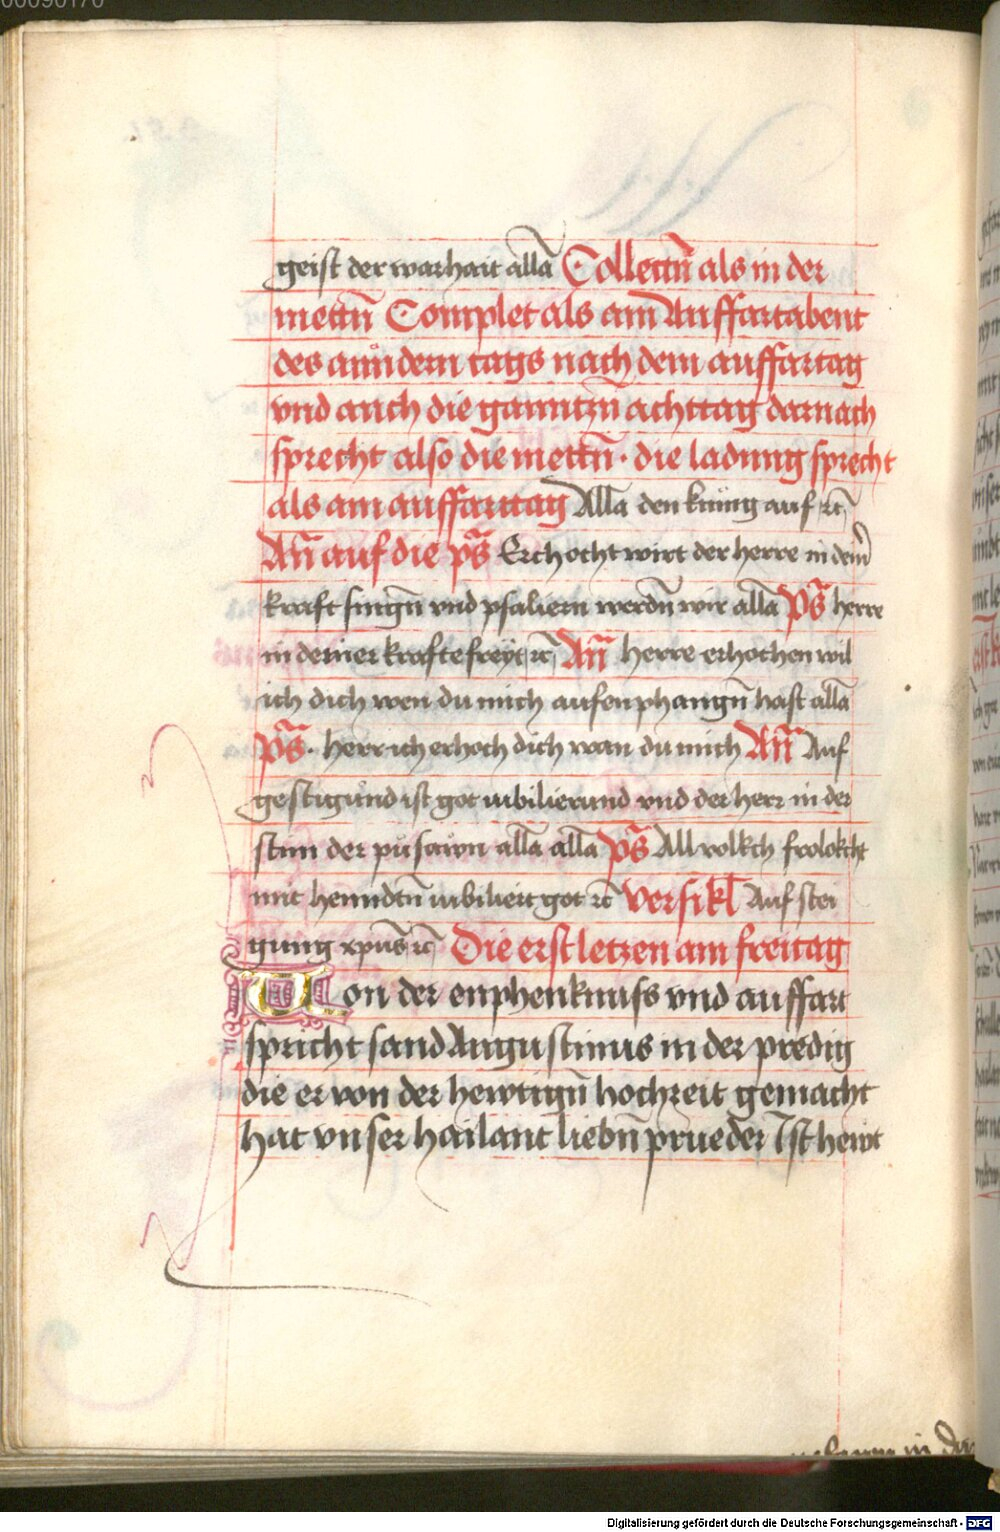 00090170
geist der warhait allā Collectn̄ als in der
mettn̄ Complet als am Auffartabent
des anndern tags nach dem auffartag
vnd auch die ganntzn̄ achttag darnach
sprecht also die mettn̄ · die ladung sprecht
als am auffarttag Allā den kunig auf ꝛc̄
An̄ auf die ps̄ Erhocht wirt der herre in deinˀ
kraft singn̄ vnd psaliern werdn̄ wir allā ps̄ herre
in deiner krafte freyt ꝛc̄ An̄ herre erhochen wil
ich dich wen du mich aufenphangn̄ hast allā
ps̄ · herr ich erhoch dich wan du mich An̄ Auf
gestigund ist got iubilierund vnd der herr in der
stim der pusawn allā allā ps̄ All volkch frolokcht
mit henndtn̄ iubiliert got ꝛc̄ versikl̄ Auf stei
gung xpus̄ ꝛc̄ Die erst letzen am freitag
Uon der enphenknuss vnd auffart
spricht sand Augustinus in der predig
die er von der hewtign̄ hochzeit gemacht
hat vnser hailant liebn̄ prueder Ist hewt
Digitalisierung gefördert durch die Deutsche Forschungsgemeinschaft - DFG